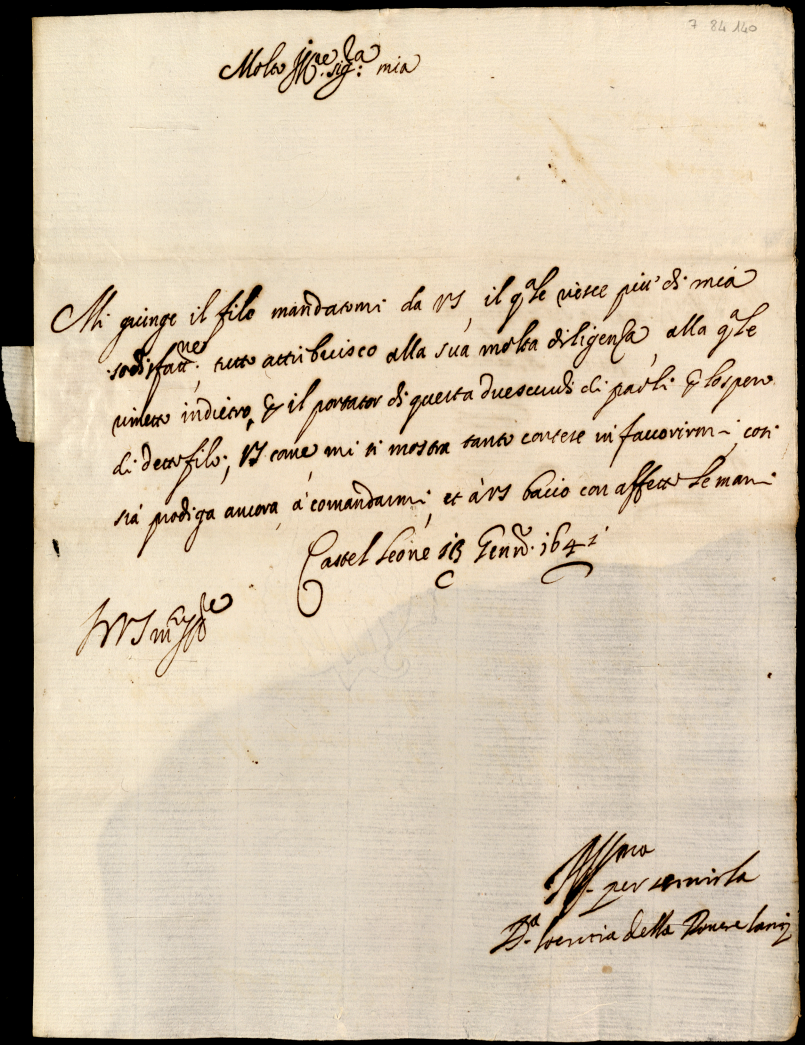 7 84 140
Molto Ill.re sig.ra mia
Mi giunge il filo mandatomi da VS, il q.ale riesce piu' di mia
sodisfatt.ne, tutto attribuisco alla sua molta diligenza, alla q.ale
rimetto indietro, & il portator di questa due scudi di paoli & lo spero
di detto filo, VS come mi si mostra tanto cortese in favorirmi, cosi
sia prodiga ancora a' comandarmi, et à VS bacio con affetto le mani
Castel Leone 13 Genn.o 1641
VS m.to Ill.re
Aff.ma
per servirla
D.a della Rovere